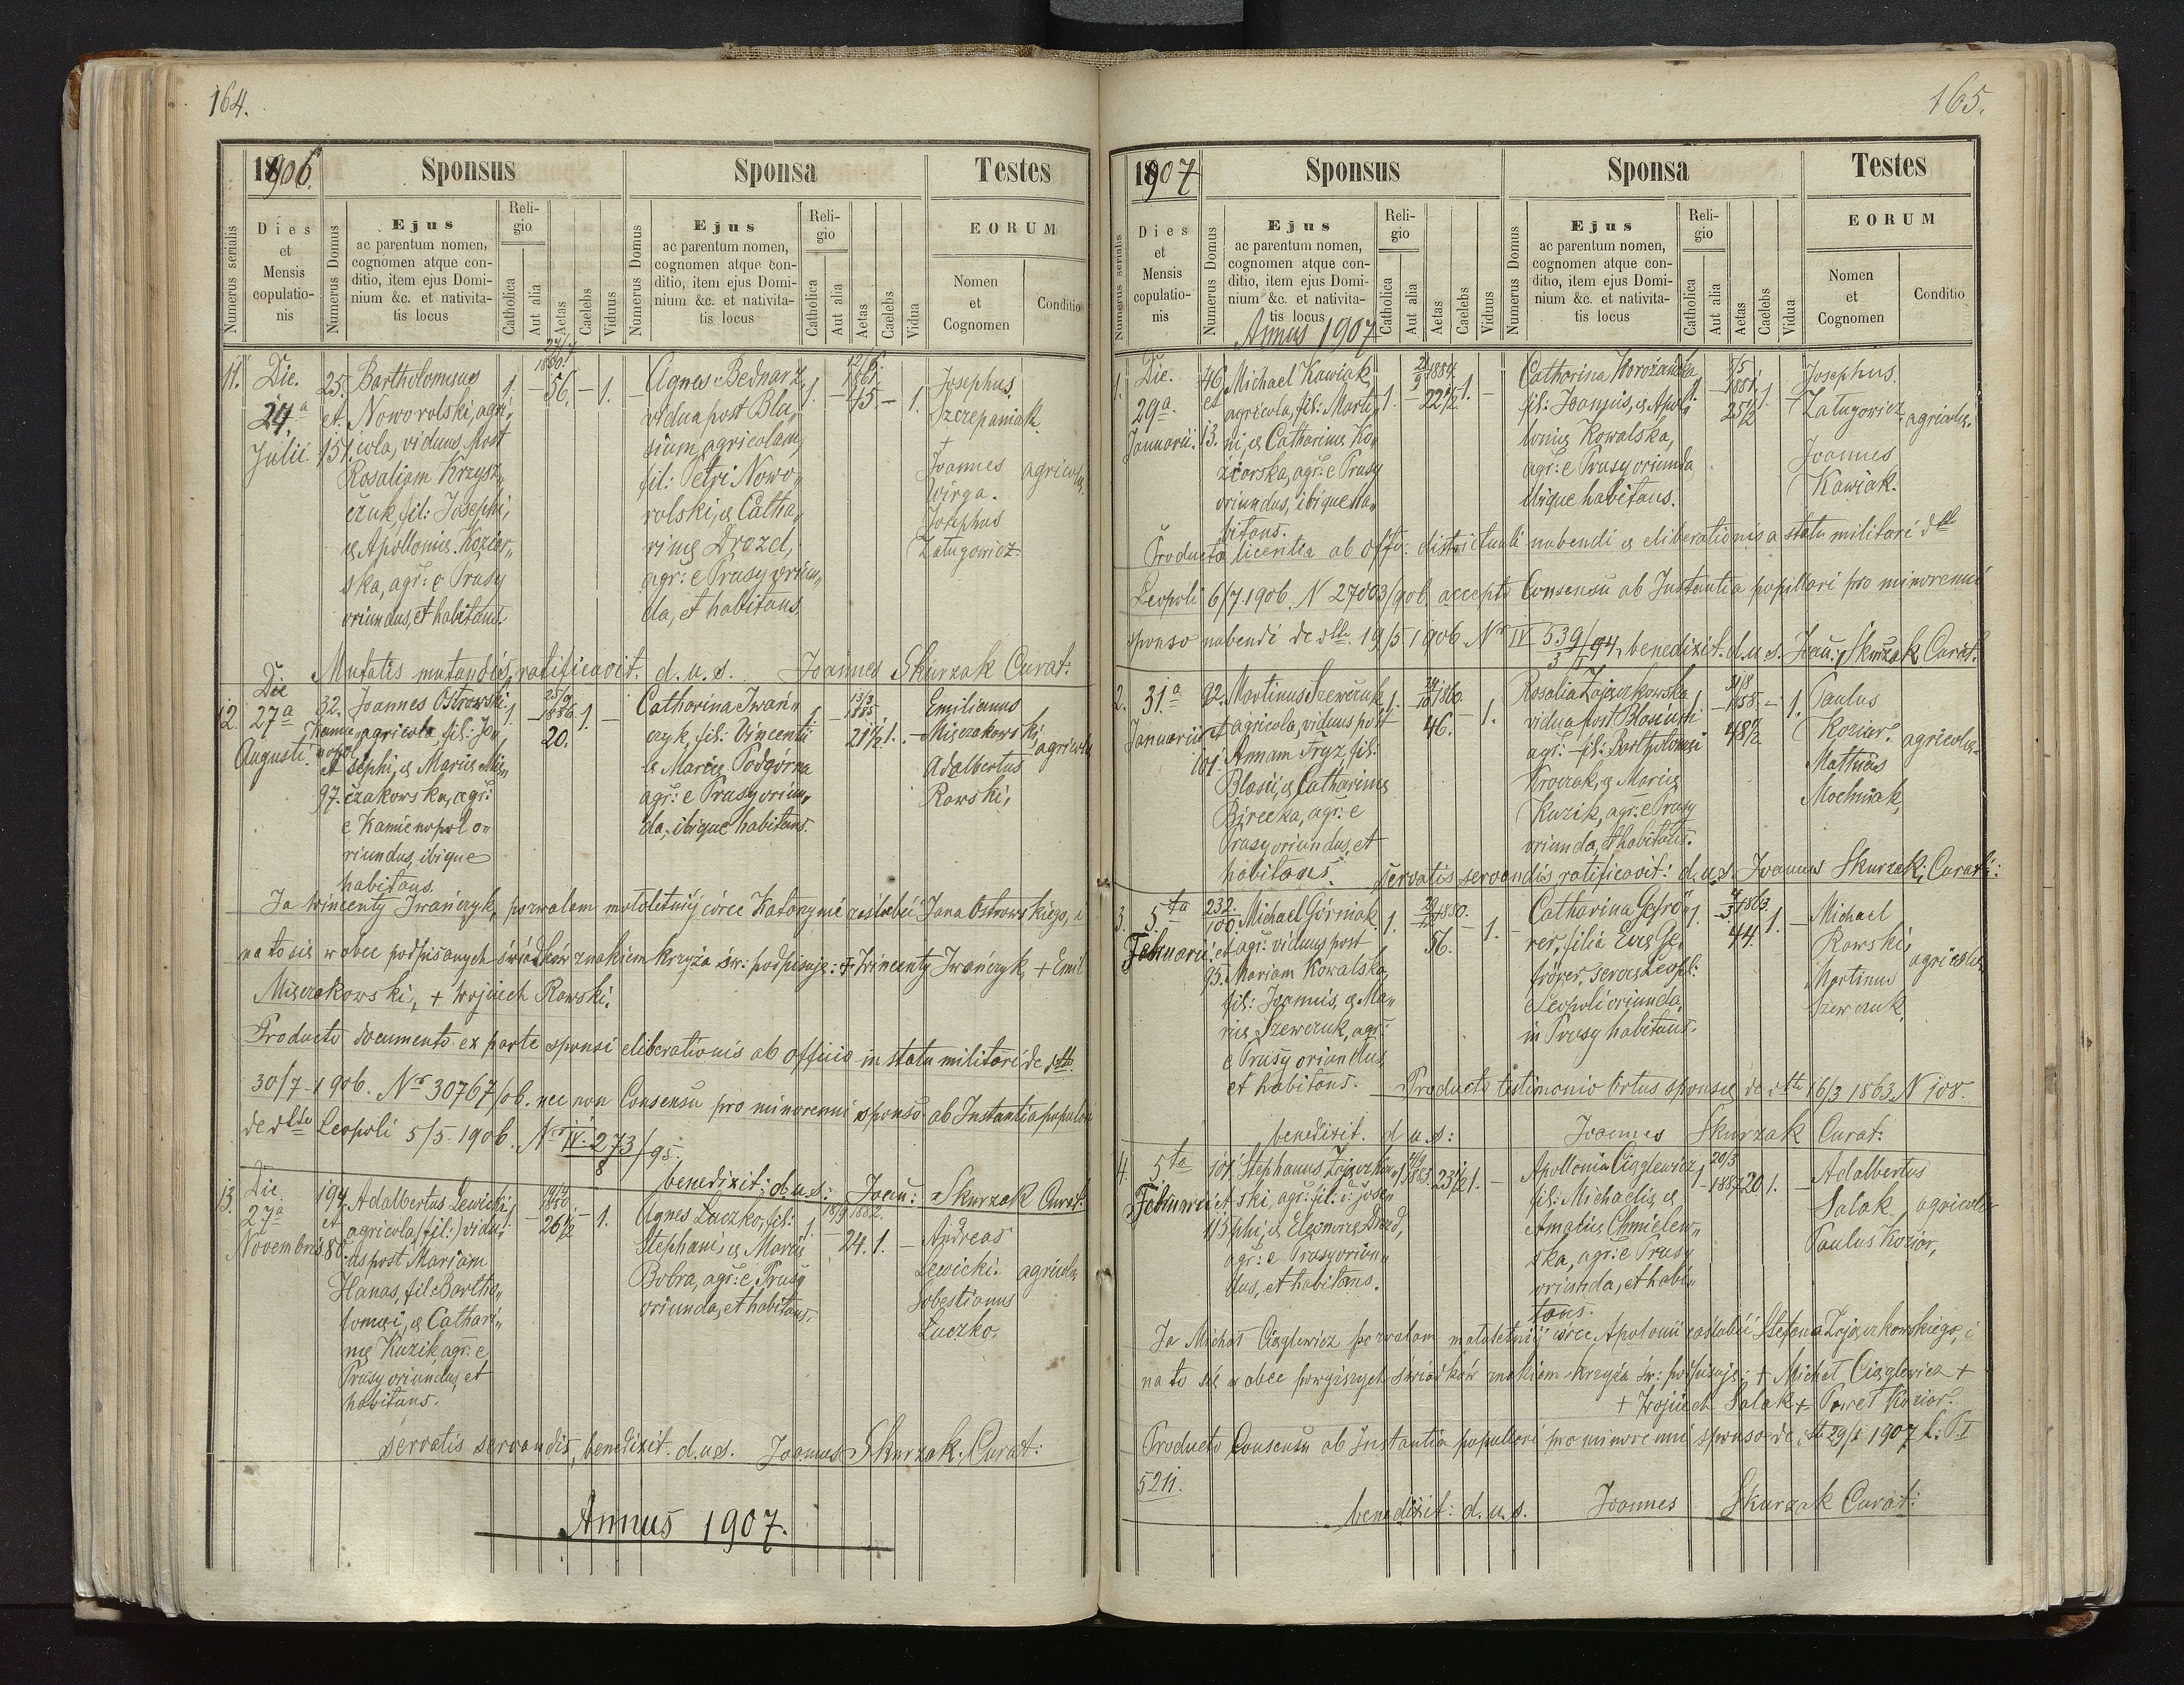 164.
1906.
Sponsus
Sponsa
Testes
Numerus serialis
Dies
et
Mensis
copulatio-
nis
Numerus Domus
Ejus
ac parentum nomen,
cognomen atque con-
ditio, item ejus Domi-
nium &c. et nativita-
tis locus
Reli-
gio
Catholica
Aut alia
Aetas
Caelebs
Viduus
Numerus Domus
Ejus
ac parentum nomen,
cognomen atque con-
ditio, item ejus Domi-
nium &c. et nativita-
tis locus
Reli-
gio
Catholica
Aut alia
Aetas
Caelebs
Vidua
EORUM
Nomen
et
Cognomen
Conditio
11.
Die.
24a
Julii
25.
et
151.
Bartholomæus
Noworolski, agri„
cola, viduus post
Rosaliam Krzysz„
czuk, fil: Josephi,
& Apolloniæ Kozior„
ska, agr: e Prusy
oriundus, et habitans.
1.
1850.
– 56. – 1.
Agnes Bednarz,
vidua post Bla„
sium, agricolam,
fil: Petri Nowo„
rolski, & Catha„
rinæ Drozd,
agr: e Prusy oriun„
da, et habitans
1.
12/6.
1861.
– 45. – 1.
Josephus
Szczepaniak.
+
Joannes
Wirga.
Josephus
Załugowicz.
agricolæ.
Mutatis mutandis, ratificavit. d.u.s. Joannes Skurzak Curat:
12.
Die
27a
Augusti.
32.
Kamie„
nopol
et
97.
Joannes Ostrowski
agricola, fil: Jo„
sephi, & Mariæ Mię„
czakowska, agr:
e Kamienopol o„
riundus, ibique
habitans.
1.
25/9
1886.
20.
1. –
Catharina Iwań„
czyk, fil: Vincentii
& Mariæ Podgórna
agr: e Prusy oriun„
da, ibique habitans.
1.
13/3.
1885
21 1/2
1. –
Emilianus
Mięczakowski,
Adalbertus
Rawski,
agricolæ
Ja Wincenty Iwańczyk, pozwalam małoletniéj córce Katarzynie zaślubić Jana Ostrowskiego, i
na to się wobec podpisanych świadków znakiem krzyża św: podpisuję: + Wincenty Iwańczyk, + Emil
Mięczakowski, + Wojciech Rawski.
Producto documento ex parte sponsi eliberationis ab officio in statu militari de dtto
30/7 1906. Nro 30767/06. nec non Consensu pro minorenni sponso ab Instantia pupillari
de dtto Leopoli 5/5. 1906. Nro IV. 273/95.
8
benedixit: d.u.s: Joan: Skurzak Curat:
13.
Die
27a
Novembris
194.
et
80.
Adalbertus Lewicki,
agricola, (fil:) vidu„
us post Mariam
Hanas, fil: Bartho„
lomæi, & Cathari„
næ Kuzik, agr: e
Prusy oriundus, et
habitans.
1.
1880.
– 26 1/2
– 1.
Agnes Łuczko, fil:
Stephani, & Mariæ
Bobra, agr: e Prusy
oriunda, et habitans.
1.
18/9 1882.
– 24. 1. –
Andreas
Lewicki.
Sebastianus
Łuczko.
agricolæ
Servatis servandis, benedixit. d.u.s. Joannes Skurzak, Curat:
Annus 1907.
165.
1907
Sponsus
Sponsa
Testes
Numerus serialis
Dies
et
Mensis
copulatio-
nis
Numerus Domus
Ejus
ac parentum nomen,
cognomen atque con-
ditio, item ejus Domi-
nium &c. et nativita-
tis locus
Annus 1907
Reli-
gio
Catholica
Aut alia
Aetas
Caelebs
Viduus
Numerus Domus
Ejus
ac parentum nomen,
cognomen atque con-
ditio, item ejus Domi-
nium &c. et nativita-
tis locus
Reli-
gio
Catholica
Aut alia
Aetas
Caelebs
Vidua
EORUM
Nomen
et
Cognomen
Conditio
1.
Die.
29a.
Januarii.
46.
et
13.
Michael Kawiak,
agricola, fil: Marti„
ni, & Catharinæ Ko„
ziorska, agr: e Prusy
oriundus, ibique ha„
bitans.
1.
1884.
– 22 1/2
1. –
Catharina Horożańska
fil: Joannis, & Apol„
loniæ Kowalska,
agr: e Prusy oriunda
ibique habitans.
1.
1881.
25 1/2
1. –
Josephus
Załugowicz
Joannes
Kawiak.
agricolæ.
Producta licentia ab offo: districtuali nubendi & eliberationis a statu militari dtto
Leopoli 6/7 1906. N 27003/906. accepto Consensu ab Instantia pupillari pro minorenni
sponso nubendi de dtto. 19/5 1906. Nro IV 539/94, benedixit. d.u.s. Joan: Skurzak Curat:
2.
31a
Januarii
92.
et
101
Martinus Szewczuk,
agricola, viduus post
Annam Fryz, fil:
Blasii, & Catharinæ
Birecka, agr: e
Prusy oriundus, et
habitans.
1.
1860.
46.
– 1.
Rosalia Zajączkowska
vidua post Blasium
agr: fil: Bartholomæi
Kroczak, & Mariæ
Kuzik, agr: e Prusy
oriunda, et habitans.
1
31/8
– 1858. –
48 1/2
1.
Paulus
Kozior.
Matthias
Mochnak,
agricolæ
Servatis servandis, ratificavit: d.u.s. Joannes Skurzak, Curat:
3.
5ta
Februarii
232.
100
et
95.
Michael Górniak
agr: viduus post
Mariam Kowalska,
fil: Joannis, & Ma„
riæ Szewczuk, agr:
e Prusy oriundus,
et habitans.
1.
1850.
56.
– 1.
Catharina Gefrö„
rer, filia Evæ Ge„
frörer, servæ Leopl:
e Leopoli oriunda,
in Prusy habitans.
1.
1863.
44.
1. –
Michael
Rawski,
Martinus
Szewczuk.
agricolæ
Producto testimonio Ortus sponsæ de dtto 16/3 1863 N 108.
benedixit. d u.s: Joannes Skurzak Curat:
4.
5ta
Februarii
101.
et
115
Stephanus Zajączkow„
ski, agr: fil: Jose„
phi, & Eleonoræ Drozd,
agr: e Prusy oriun„
dus, et habitans.
1
1883.
23 1/2
1. –
Apollonia Ciąglewicz,
fil: Michaelis, &
Amaliæ Chmielew„
ska, agr: e Prusy
oriunda, et habi„
tans.
1
20/3
– 1887
20 1. –
Adalbertus
Salak
Paulus Kozior,
agricolæ
Ja Michał Ciąglewicz pozwalam małoletniéj córce Apolonii zaślubić Stefana Zajączkowskiego, i
na to się wobec powyższych świadków znakiem krzyża św: podpisuję: + Michał Ciąglewicz +
+ Wojciech Salak + Paweł Kozior.
Producto Consensu ab Instantia pupillari pro minorenni sponso de dto 29/1 1907 L: P I
5211.
benedixit: d.u.s. Joannes Skurzak Curat: